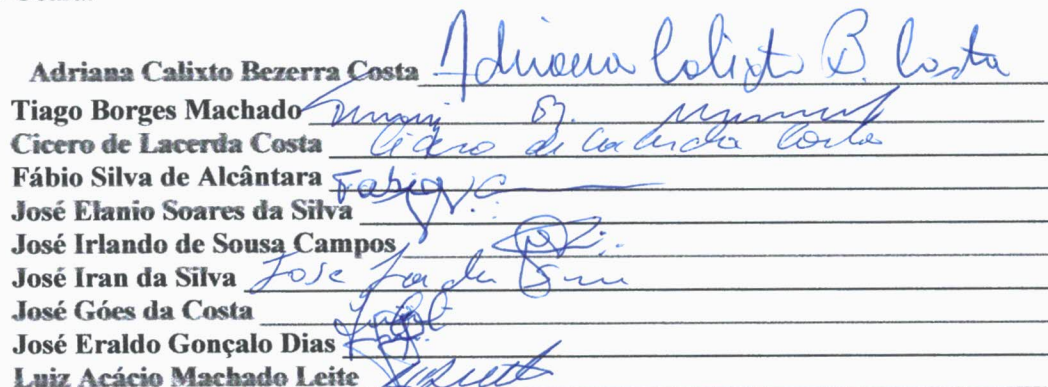 Adriana Calixto Bezerra Costa Adriana Calixto B. Costa
Tiago Borges Machado
Cicero de Lacerda Costa Cicero de Lacerda Costa
Fábio Silva de Alcântara Fabio
José Elanio Soares da Silva
José Irlando de Sousa Campos
José Iran da Silva Jose Iran da Silva
José Góes da Costa
José Eraldo Gonçalo Dias
Luiz Acácio Machado Leite